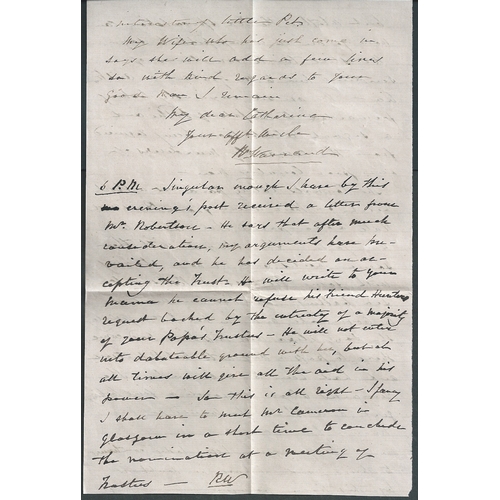 little Pet
My Wife who has just come in
says she will add a few lines
so with kind regards to your
good man I remain
My dear Catherine
Your afft Uncle
6 P.M. - Singular enough I have by this
evening's post received a letter from
Mr. Robertson - He says that after much
consideration, my arguments have pre-
vailed, and he has decided on ac-
cepting the Trust - He will write to your
Mama he cannot refuse his friend Hunters
request backed by the entreaty of a majority
of your Papa's Trustees - He will not enter
into debateable ground with her, but at
all times will give all the aid in his
power - So this is all right - I fancy
I shall have to meet Mr Cameron in
Glasgow in a short time to conclude
the nomination at a meeting of
Trustees - RW